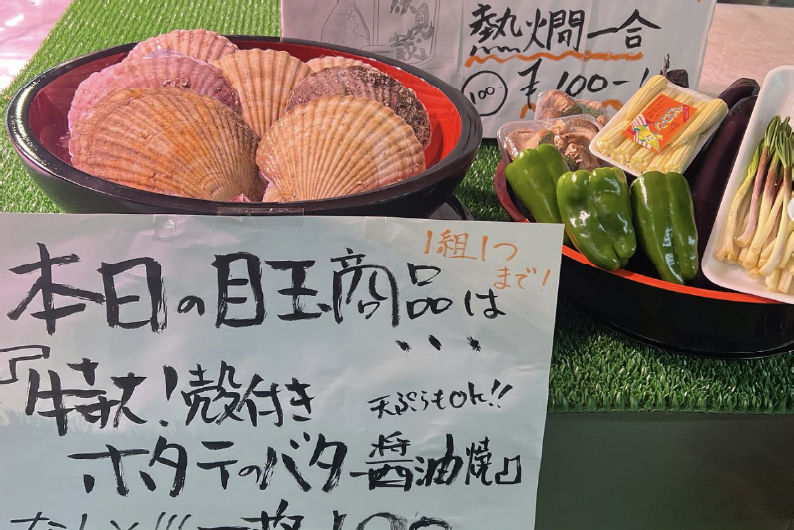 熱燗一合
100
¥100-
1組1つ
まで!
本日の目玉商品は
...
『特大!殻付き
天ぷらもOK!!
ホタテのバター醤油焼』
なんと!!!一枚100